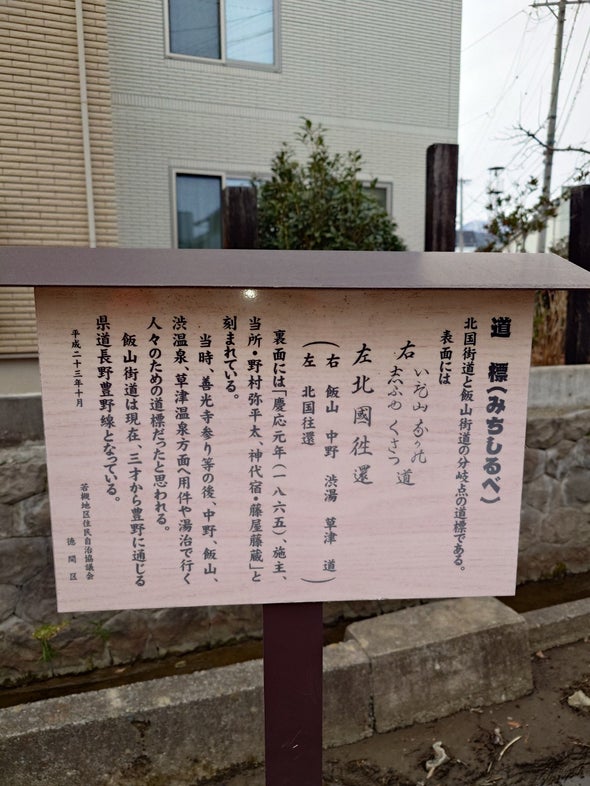 道標(みちしるべ)
北国街道と飯山街道の分岐点の道標である。
表面には
右 いゐ山 なか乃
志ぶゆ くさつ 道
左北國徃還
(右 飯山 中野 渋湯 草津 道)
(左 北国往還)
裏面には「慶応元年(一八六五)、施主、
当所・野村弥平太、神代宿・藤屋藤蔵」と
刻まれている。
当時、善光寺参り等の後、中野、飯山、
渋温泉、草津温泉方面へ用件や湯治で行く
人々のための道標だったと思われる。
飯山街道は現在、三才から豊野に通じる
県道長野豊野線となっている。
平成二十三年十月
若槻地区住民自治協議会
徳間区